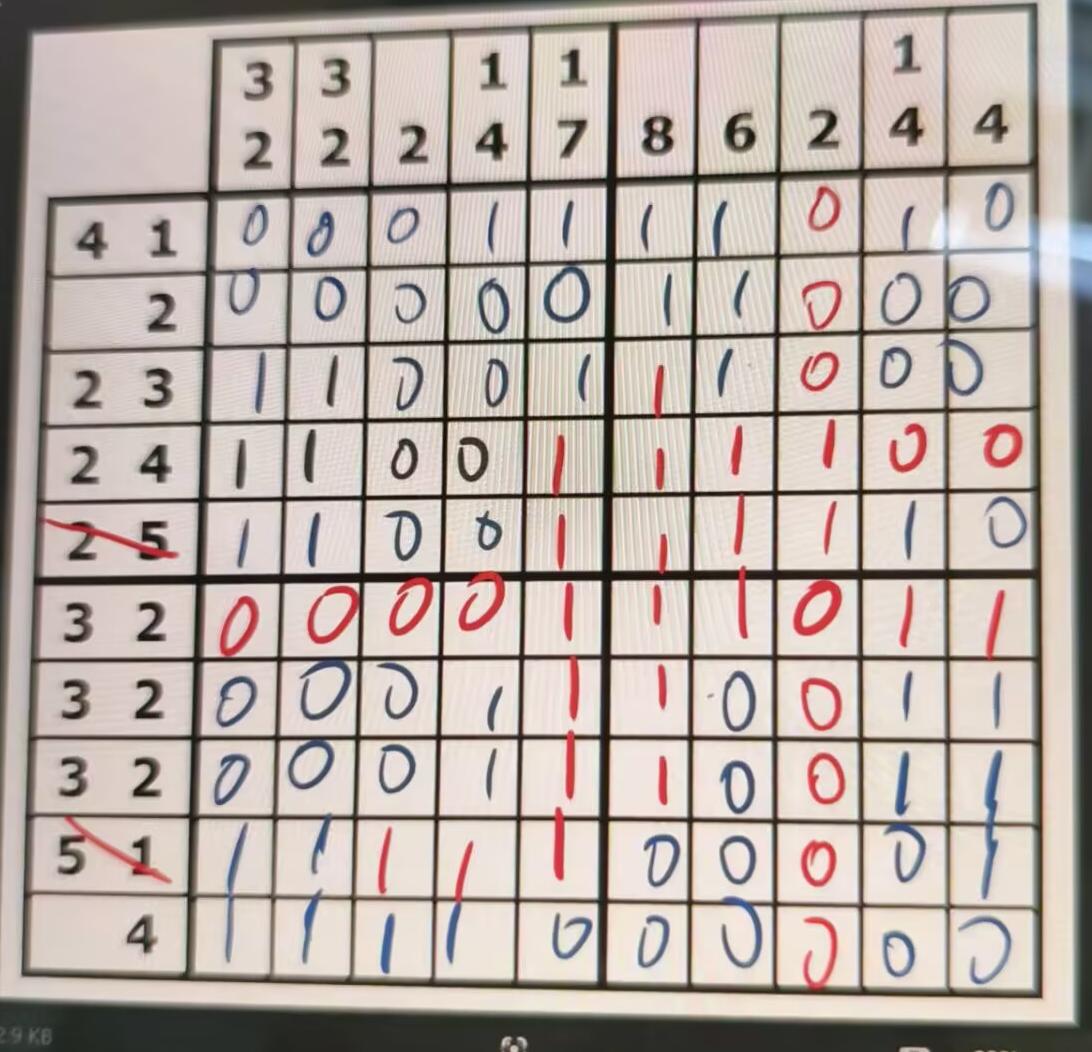 3 3 1 1 1
2 2 2 4 7 8 6 2 4 4
4 1 0 0 0 1 1 1 1 0 1 0
2 0 0 0 0 0 1 1 0 0 0
2 3 1 1 0 0 1 1 1 0 0 0
2 4 1 1 0 0 1 1 1 1 0 0
2 5 1 1 0 0 1 1 1 1 1 0
3 2 0 0 0 0 1 1 1 0 1 1
3 2 0 0 0 1 1 1 0 0 1 1
3 2 0 0 0 1 1 1 0 0 1 1
5 1 1 1 1 1 1 0 0 0 0 1
4 1 1 1 1 0 0 0 0 0 0
2.9 KB